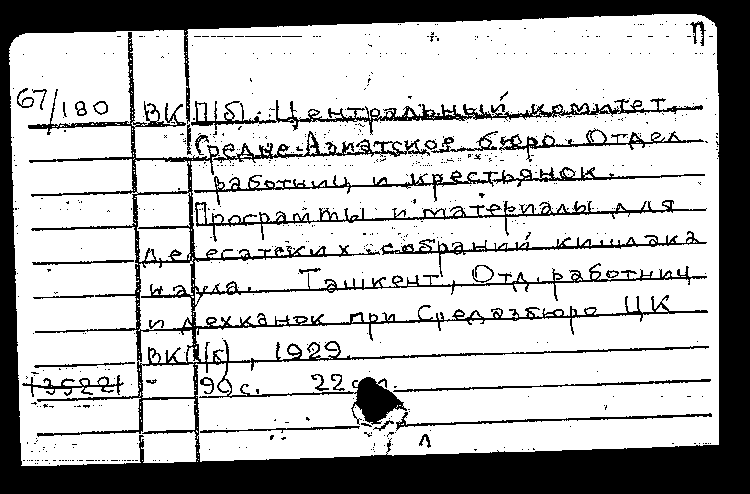 П
67/180 ВКП(б). Центральный комитет.
Средне-Азиатское бюро. Отдел
работниц и крестьянок.
Программы и материалы для
делегатских собраний кишлака
и аула. Ташкент, Отд. работниц
и дехканок при Средазбюро ЦК
ВКП(б), 1929.
90 с. 22 см.